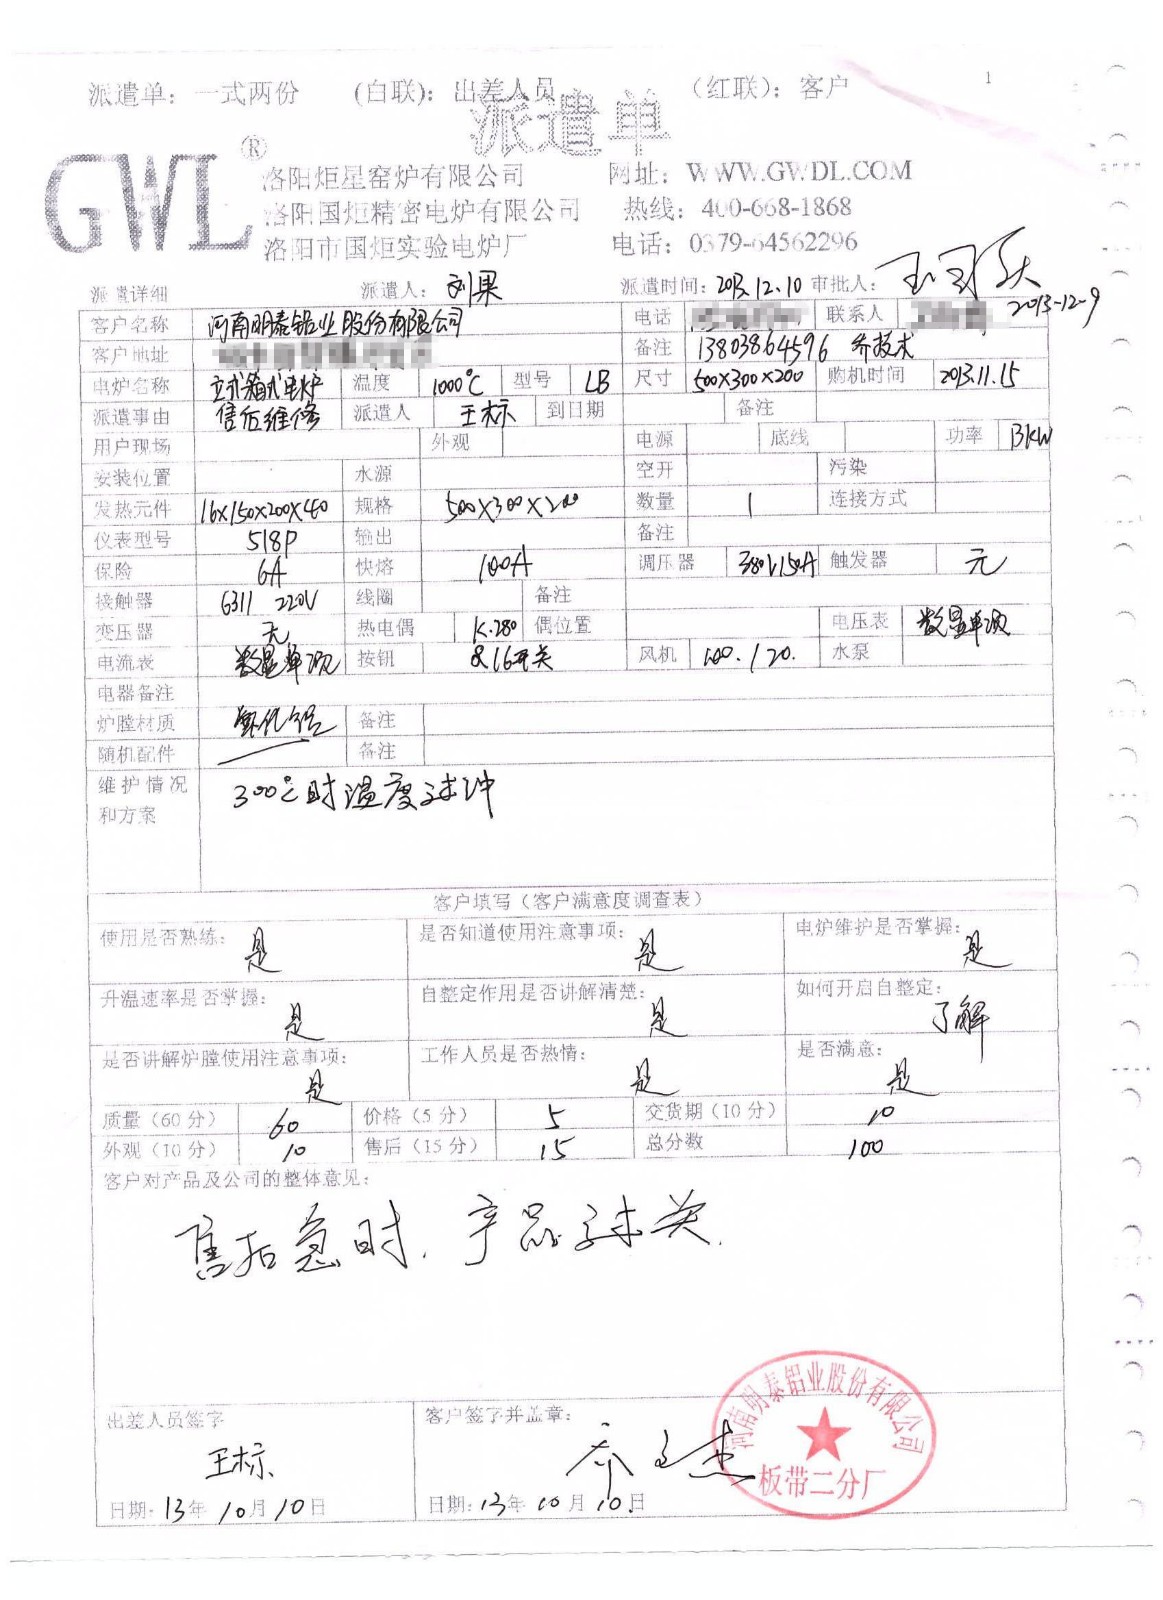 派遣单：一式两份 （白联）：出差人员 （红联）：客户 1
派遣单
GWL®
洛阳炬星窑炉有限公司 网址：WWW.GWDL.COM
洛阳国炬精密电炉有限公司 热线：400-668-1868
洛阳市国炬实验电炉厂 电话：0379-64562296
派遣详细 派遣人：刘果 派遣时间：2013.12.10 审批人：
2013-12-9
客户名称 河南明泰铝业股份有限公司 电话 联系人
客户地址 备注 13803864596 乔技术
电炉名称 立式箱式电炉 温度 1000℃ 型号 LB 尺寸 500×300×200 购机时间 2013.11.15
派遣事由 售后维修 派遣人 王标 到日期 备注
用户现场 外观 电源 底线 功率 13KW
安装位置 水源 空开 污染
发热元件 16×150×200×40 规格 500×300×200 数量 1 连接方式
仪表型号 518P 输出 备注
保险 6A 快熔 100A 调压器 380V150A 触发器 无
接触器 6311 220V 线圈 备注
变压器 无 热电偶 K.280 偶位置 电压表 数显单项
电流表 数显单项 按钮 &16开关 风机 100.120. 水泵
电器备注
炉膛材质 氧化铝 备注
随机配件 备注
维护情况和方案 300℃时温度过冲
客户填写（客户满意度调查表）
使用是否熟练：是 是否知道使用注意事项：是 电炉维护是否掌握：是
升温速率是否掌握：是 自整定作用是否讲解清楚：是 如何开启自整定：了解
是否讲解炉膛使用注意事项：是 工作人员是否热情：是 是否满意：是
质量（60分） 60 价格（5分） 5 交货期（10分） 10
外观（10分） 10 售后（15分） 15 总分数 100
客户对产品及公司的整体意见：
售后急时.产品过关.
出差人员签字 客户签字并盖章：
王标
日期：13年10月10日 日期：13年10月10日
河南明泰铝业股份有限公司
板带二分厂